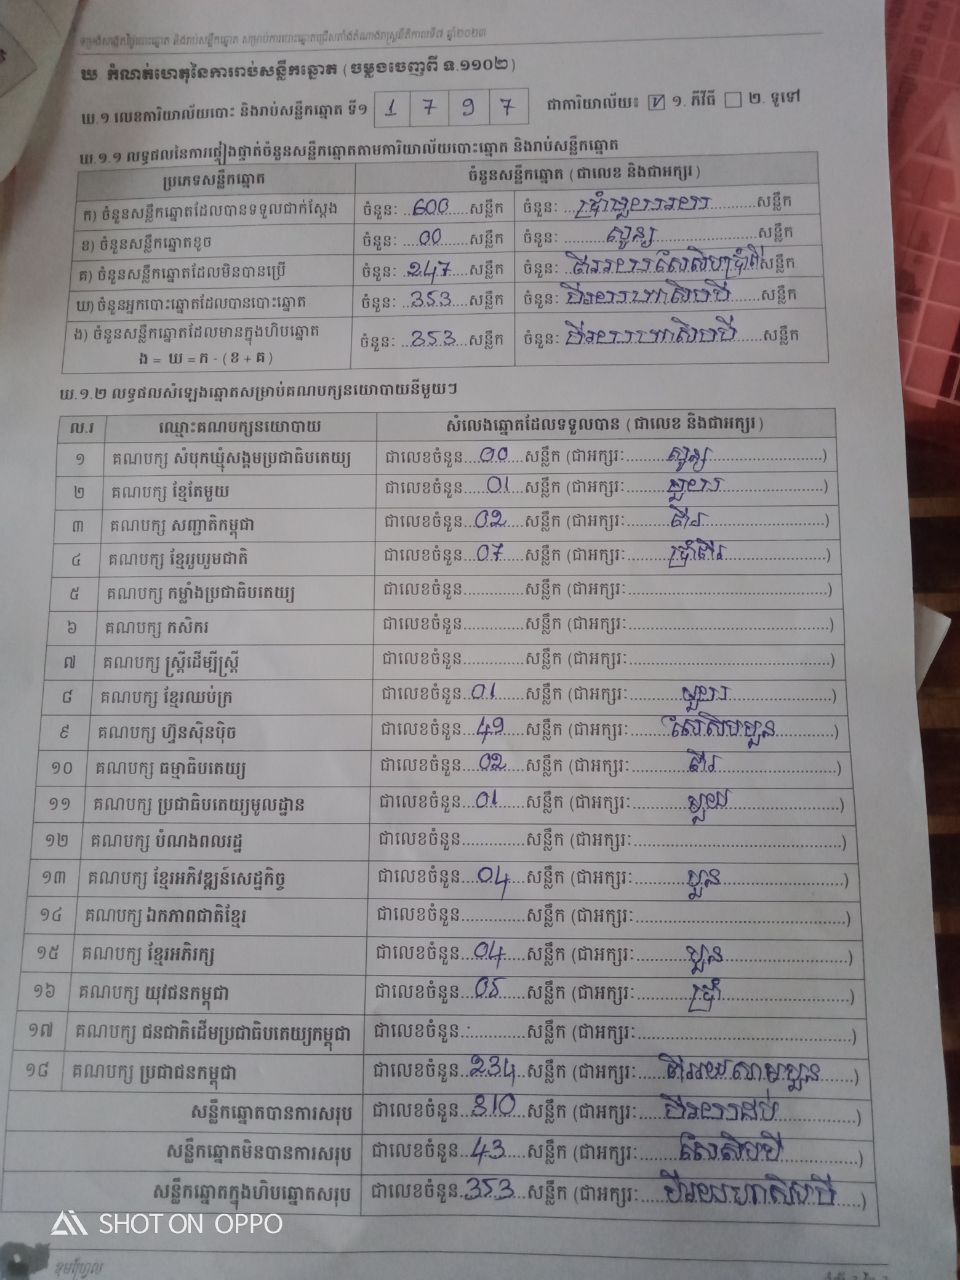 ទម្រង់សង្កេតថ្ងៃបោះឆ្នោត និងរាប់សន្លឹកឆ្នោត សម្រាប់ការបោះឆ្នោតជ្រើសតាំងតំណាងរាស្ត្រនីតិកាលទី៧ ឆ្នាំ២០២៣
ឃ. កំណត់ហេតុនៃការរាប់សន្លឹកឆ្នោត (ចម្លងចេញពី ទ.១១០២)
ឃ.១ លេខការិយាល័យបោះ និងរាប់សន្លឹកឆ្នោត ទី១ 1 7 9 7 ជាការិយាល័យ៖ ☑ ១. ភីវីធី ☐ ២. ទូទៅ
ឃ.១.១ លទ្ធផលនៃការផ្ទៀងផ្ទាត់ចំនួនសន្លឹកឆ្នោតតាមការិយាល័យបោះឆ្នោត និងរាប់សន្លឹកឆ្នោត
ប្រភេទសន្លឹកឆ្នោត ចំនួនសន្លឹកឆ្នោត (ជាលេខ និងជាអក្សរ)
ក) ចំនួនសន្លឹកឆ្នោតដែលបានទទួលជាក់ស្តែង ចំនួនៈ ..600......សន្លឹក ចំនួនៈ ...ប្រាំមួយរយ..........សន្លឹក
ខ) ចំនួនសន្លឹកឆ្នោតខូច ចំនួនៈ ...00......សន្លឹក ចំនួនៈ .........សូន្យ..............សន្លឹក
គ) ចំនួនសន្លឹកឆ្នោតដែលមិនបានប្រើ ចំនួនៈ ..247....សន្លឹក ចំនួនៈ ..ពីររយសែសិបប្រាំពីរ សន្លឹក
ឃ) ចំនួនអ្នកបោះឆ្នោតដែលបានបោះឆ្នោត ចំនួនៈ ..353....សន្លឹក ចំនួនៈ បីរយហាសិបបី......សន្លឹក
ង) ចំនួនសន្លឹកឆ្នោតដែលមានក្នុងហិបឆ្នោត ចំនួនៈ ..353....សន្លឹក ចំនួនៈ បីរយហាសិបបី......សន្លឹក
ង = ឃ = ក - (ខ + គ)
ឃ.១.២ លទ្ធផលសំឡេងឆ្នោតសម្រាប់គណបក្សនយោបាយនីមួយៗ
ល.រ ឈ្មោះគណបក្សនយោបាយ សំលេងឆ្នោតដែលទទួលបាន (ជាលេខ និងជាអក្សរ)
១ គណបក្ស សំបុកឃ្មុំសង្គមប្រជាធិបតេយ្យ ជាលេខចំនួន...00....សន្លឹក (ជាអក្សរៈ........សូន្យ....................)
២ គណបក្ស ខ្មែរតែមួយ ជាលេខចំនួន....01....សន្លឹក (ជាអក្សរៈ........មួយ....................)
៣ គណបក្ស សញ្ជាតិកម្ពុជា ជាលេខចំនួន...02....សន្លឹក (ជាអក្សរៈ........ពីរ....................)
៤ គណបក្ស ខ្មែររួបរួមជាតិ ជាលេខចំនួន...07....សន្លឹក (ជាអក្សរៈ........ប្រាំពីរ....................)
៥ គណបក្ស កម្លាំងប្រជាធិបតេយ្យ ជាលេខចំនួន.............សន្លឹក (ជាអក្សរៈ....................................)
៦ គណបក្ស កសិករ ជាលេខចំនួន.............សន្លឹក (ជាអក្សរៈ....................................)
៧ គណបក្ស ស្ត្រីដើម្បីស្ត្រី ជាលេខចំនួន.............សន្លឹក (ជាអក្សរៈ....................................)
៨ គណបក្ស ខ្មែរឈប់ក្រ ជាលេខចំនួន..01......សន្លឹក (ជាអក្សរៈ..........មួយ....................)
៩ គណបក្ស ហ៊្វុនស៊ិនប៉ិច ជាលេខចំនួន...49....សន្លឹក (ជាអក្សរៈ.......សែសិបបួន............)
១០ គណបក្ស ធម្មាធិបតេយ្យ ជាលេខចំនួន...02....សន្លឹក (ជាអក្សរៈ..........ពីរ....................)
១១ គណបក្ស ប្រជាធិបតេយ្យមូលដ្ឋាន ជាលេខចំនួន...01....សន្លឹក (ជាអក្សរៈ..........មួយ....................)
១២ គណបក្ស បំណងពលរដ្ឋ ជាលេខចំនួន.............សន្លឹក (ជាអក្សរៈ....................................)
១៣ គណបក្ស ខ្មែរអភិវឌ្ឍន៍សេដ្ឋកិច្ច ជាលេខចំនួន...04....សន្លឹក (ជាអក្សរៈ..........បួន....................)
១៤ គណបក្ស ឯកភាពជាតិខ្មែរ ជាលេខចំនួន.............សន្លឹក (ជាអក្សរៈ....................................)
១៥ គណបក្ស ខ្មែរអភិរក្ស ជាលេខចំនួន...04....សន្លឹក (ជាអក្សរៈ..........បួន....................)
១៦ គណបក្ស យុវជនកម្ពុជា ជាលេខចំនួន...05....សន្លឹក (ជាអក្សរៈ..........ប្រាំ....................)
១៧ គណបក្ស ជនជាតិដើមប្រជាធិបតេយ្យកម្ពុជា ជាលេខចំនួន.............សន្លឹក (ជាអក្សរៈ....................................)
១៨ គណបក្ស ប្រជាជនកម្ពុជា ជាលេខចំនួន..234..សន្លឹក (ជាអក្សរៈ....ពីររយសាមបួន......)
សន្លឹកឆ្នោតបានការសរុប ជាលេខចំនួន..310...សន្លឹក (ជាអក្សរៈ.....បីរយដប់..............)
សន្លឹកឆ្នោតមិនបានការសរុប ជាលេខចំនួន..43....សន្លឹក (ជាអក្សរៈ.......សែសិបបី.............)
សន្លឹកឆ្នោតក្នុងហិបឆ្នោតសរុប ជាលេខចំនួន.353...សន្លឹក (ជាអក្សរៈ.....បីរយហាសិបបី.....)
SHOT ON OPPO